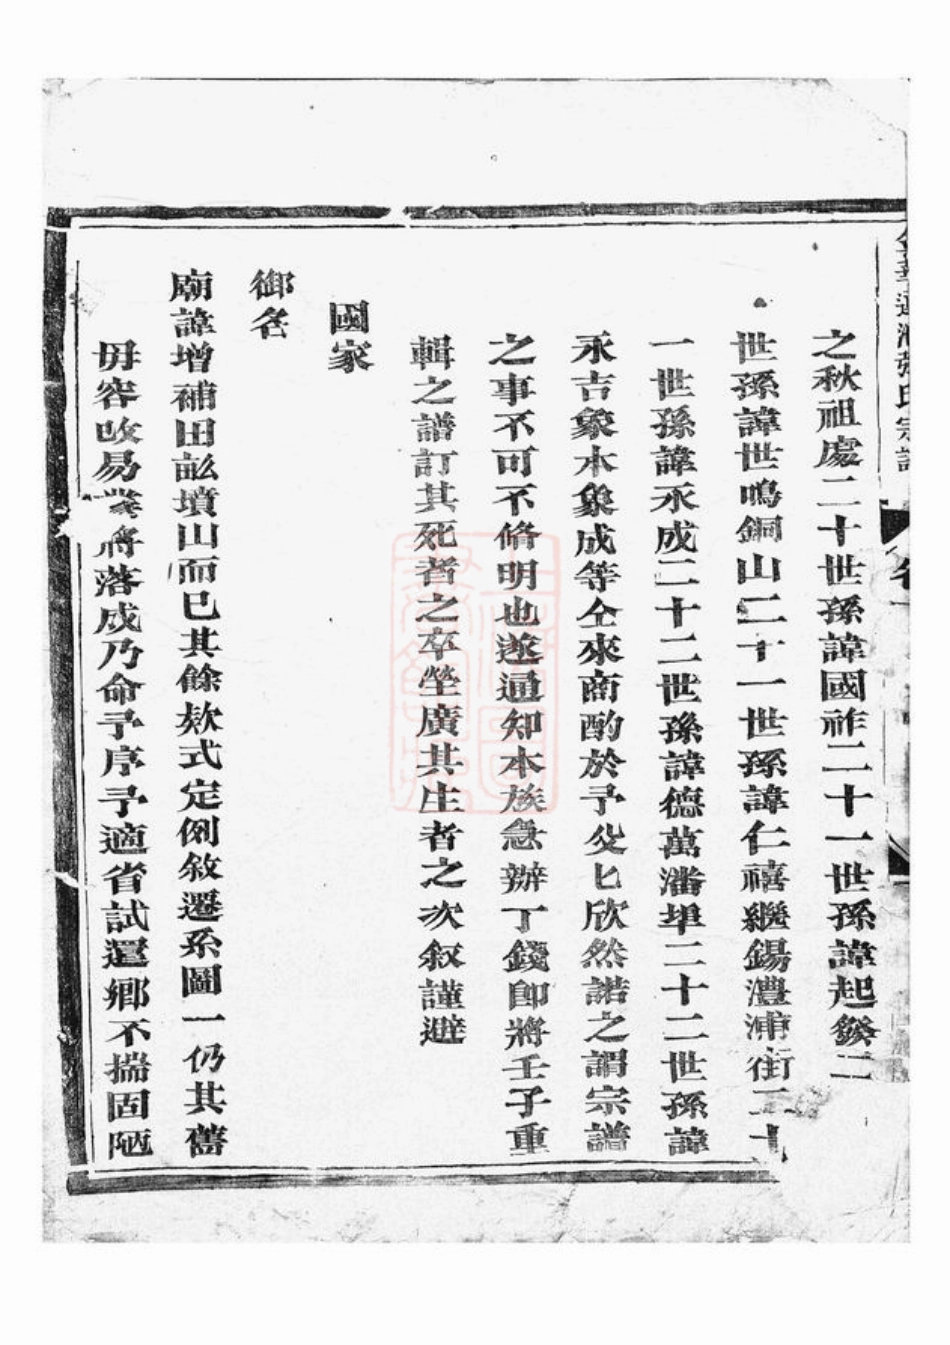 之秋祖處二十世孫諱國祚二十一世孫諱起錂二
世孫諱世鳴銅山二十一世孫諱仁禧繼錫澧浦街二十
一世孫諱永成二十二世孫諱德萬潘埠二十二世孫諱
永吉象本象成等仝來商酌於予父匕欣然諾之謂宗譜
之事不可不脩明也遂通知本族急辦丁錢卽將壬子重
輯之譜訂其死者之卒塋廣其生者之次叙謹避
國家
御名
廟諱增補田畝墳山而已其餘欵式定例敘遷系圖一仍其舊
毋容改易業將落成乃命予序予適省試還鄉不揣固陋
張氏宗譜